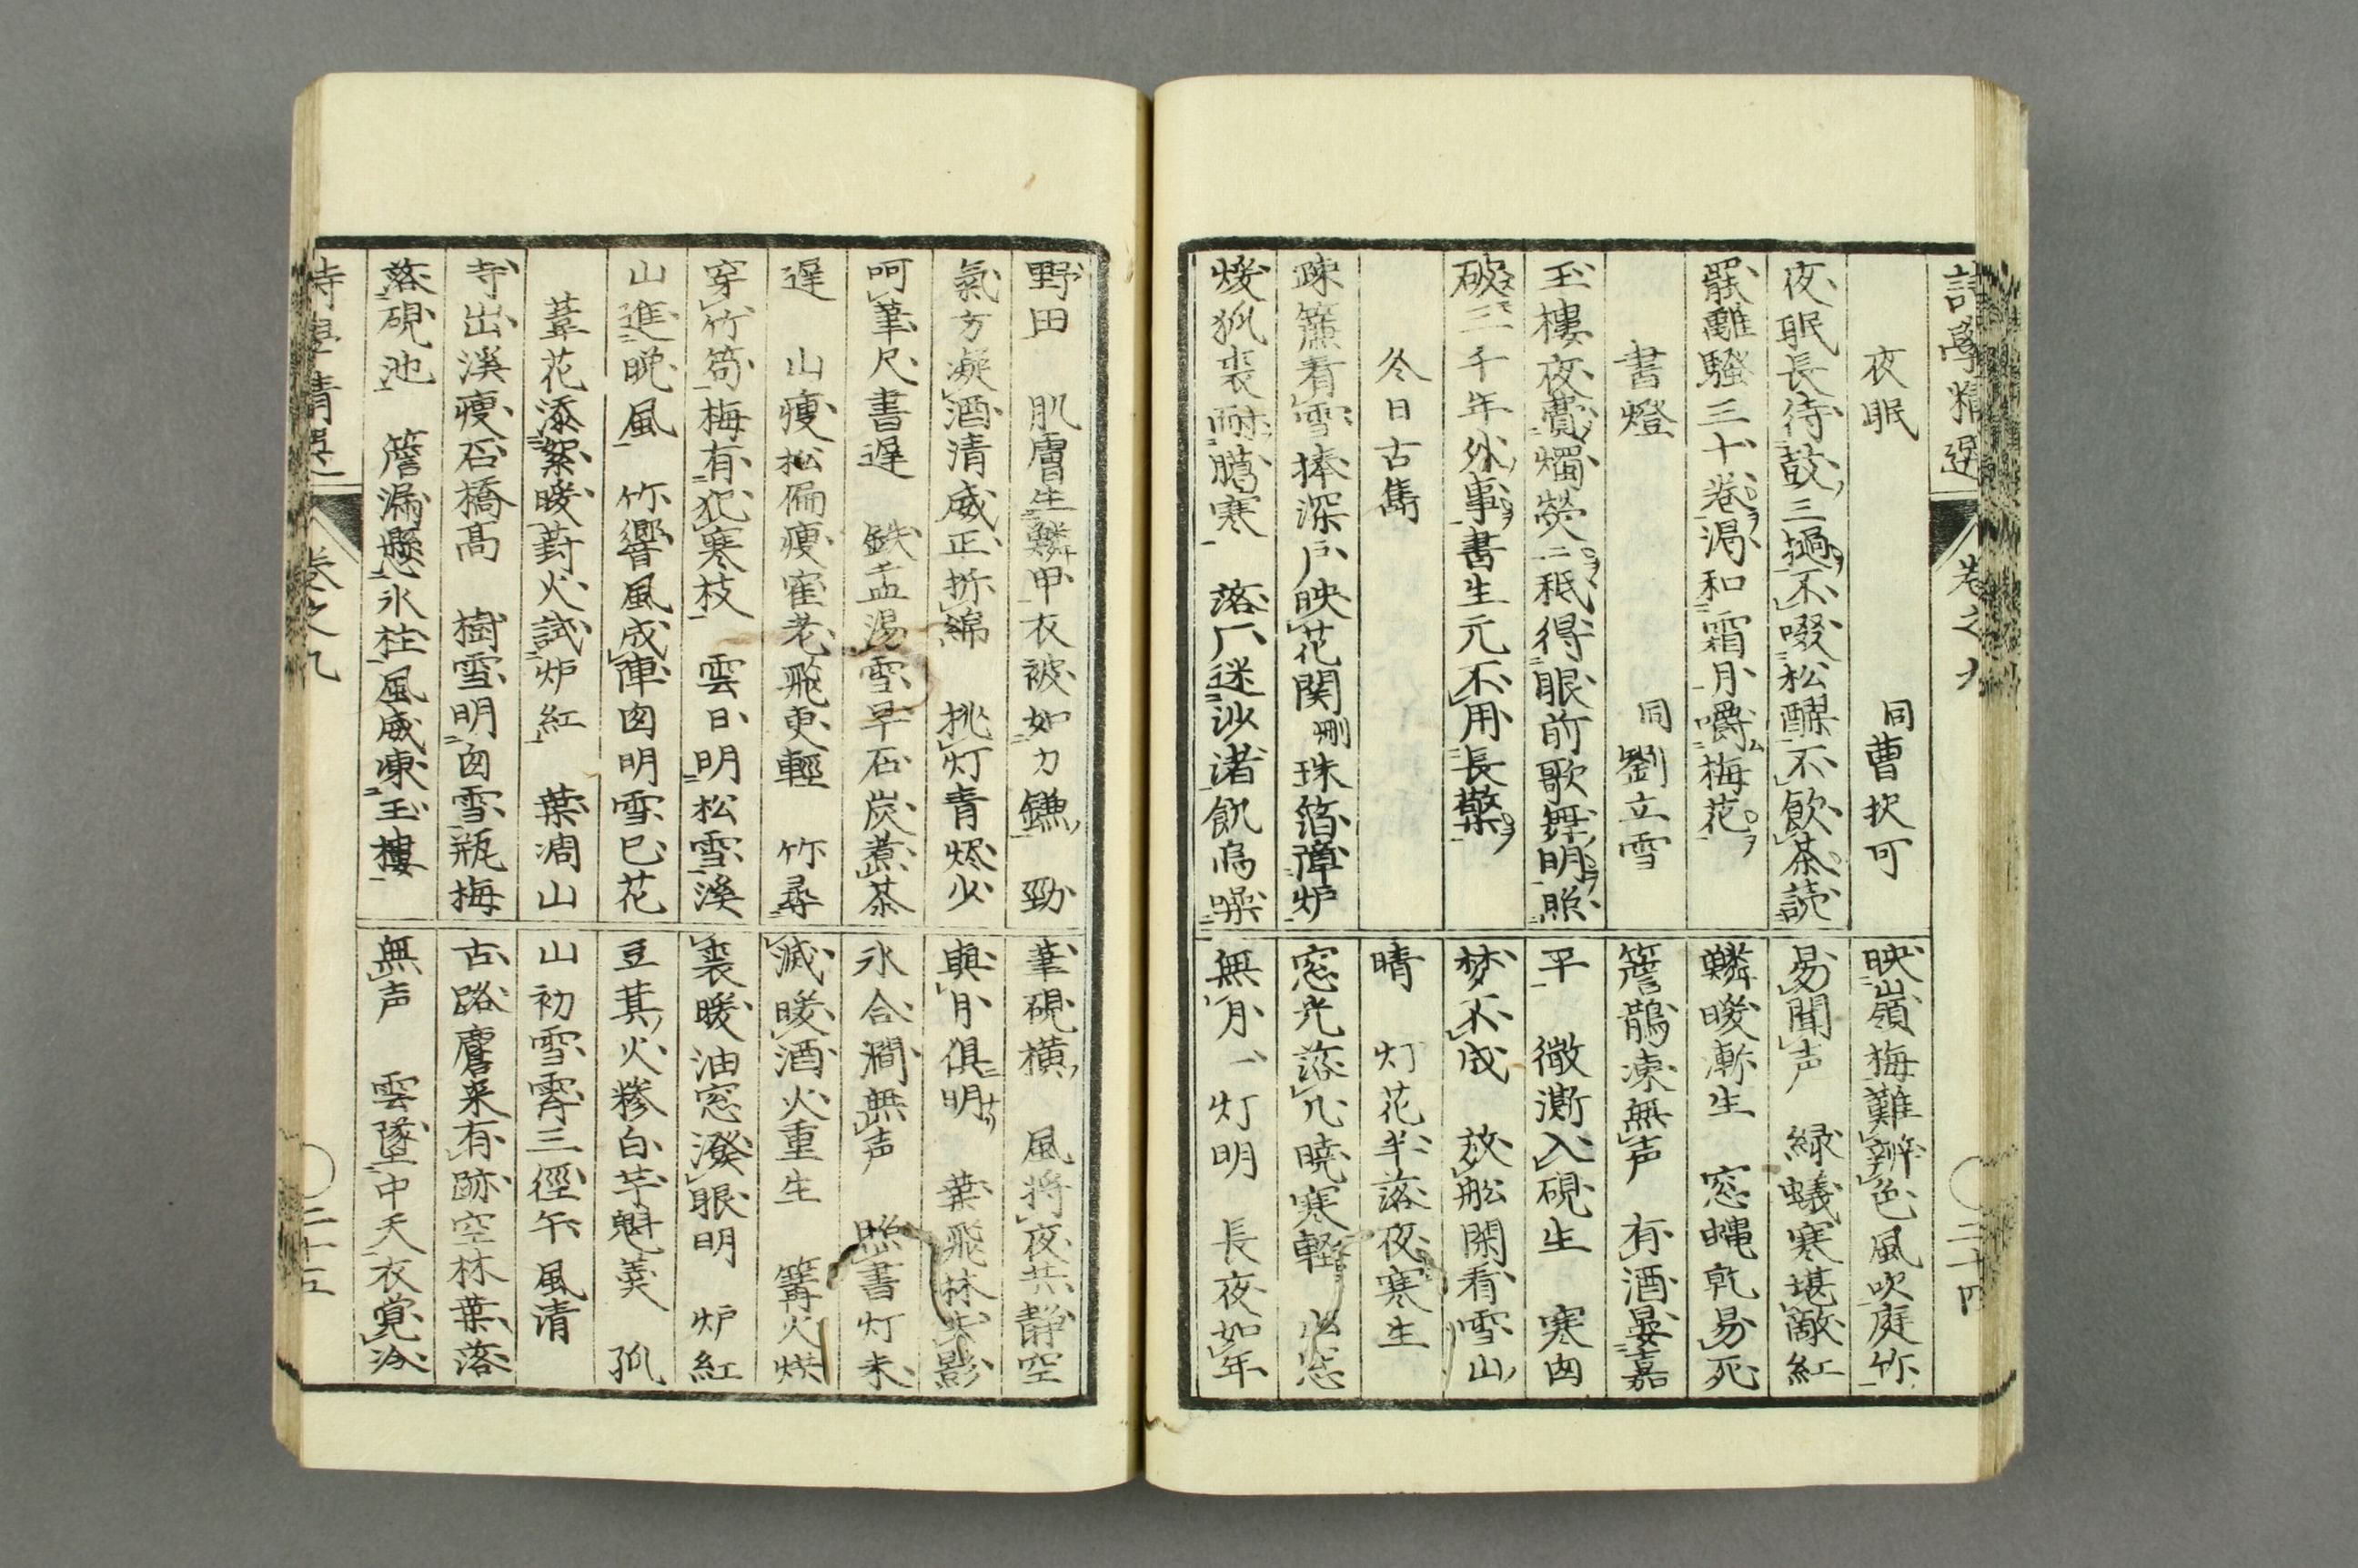 詩學精選
卷之九
二十四
夜眠
同曹扨可
夜眠長待鼓三撾不啜松醪不飲茶読
罷離騒三十卷渇和霜月嚼梅花
書燈
同劉立雪
玉樓夜費燭熒二秖得眼前歌舞明照
破三千年外事書生元不用長檠
冬日古雋
疎簾看雪捧深戸映花関珠箔障炉
煖狐裘耐臈寒 落厂迷沙渚飢烏噪
映嶺梅難辨色風吹庭竹
易聞声 緑蟻寒堪敵紅
鱗暖漸生 窓蝿乾易死
簷鵲凍無声 有酒晏嘉
平 微澌入硯生 寒囱
梦不成 放舩閑看雪山
晴 灯花半落夜寒生
窓光落几暁寒軽
無月一灯明 長夜如年
野田 肌膚生鱗甲衣被如刀鎌 勁
氣方凝酒清威正折綿 挑灯青燼火
呵筆尺書遅 鉄盂湯雪早石炭煮茶
遅 山痩松偏痩隺老飛更輕 竹尋
穿竹笱梅有犯寒枝 雲日明松雪溪
山進晩風 竹響風成陣囱明雪已花
葦花添絮暖葑火試炉紅 葉凋山
寺出溪痩石橋高 樹雪明囱雪瓶梅
落硯池 簷漏懸氷柱風威凍玉樓
筆硯横 風将夜共静空
與月倶明 葉飛林失影
氷合澗無声 照書灯未
滅暖酒火重生 篝火烘
裘暖油窓潑眼明 炉紅
豆萁火糝白芋魁羮 孤
山初雪霽三徑午風清
古路麏来有跡空林葉落
無声 雲墜中天衣覚冷
卷之九
二十五